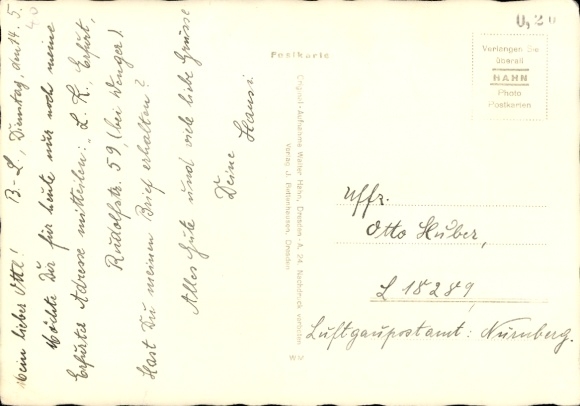 Mein lieber Otto! B.-L., Dienstag, den 14. 5.
40
Möchte Dir für heute nur noch meine
Erfurter Adresse mitteilen: „L. K., Erfurt,
Rudolfstr. 59, (bei Wenger).
Hast Du meinen Brief erhalten?
Alles Gute und viele liebe Grüsse
Deine Hansi.
Postkarte
Original-Aufnahme Walter Hahn, Dresden-A. 24. Nachdruck verboten
Verlag J. Bettenhausen, Dresden
0,20
Verlangen Sie
überall
HAHN
Photo
Postkarten
Uffz.
Otto Huber,
L 18289,
Luftgaupostamt: Nürnberg.